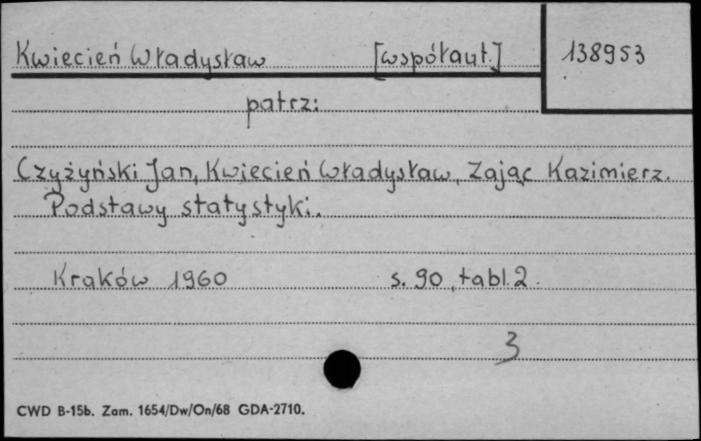 Kwiecień Władysław [współaut.] 138953
patrz:
Czyżyński Jan, Kwiecień Władysław, Zając Kazimierz.
Podstawy statystyki.
Kraków 1960 s. 90, tabl. 2.
3
CWD B-15b. Zam. 1654/Dw/On/68 GDA-2710.